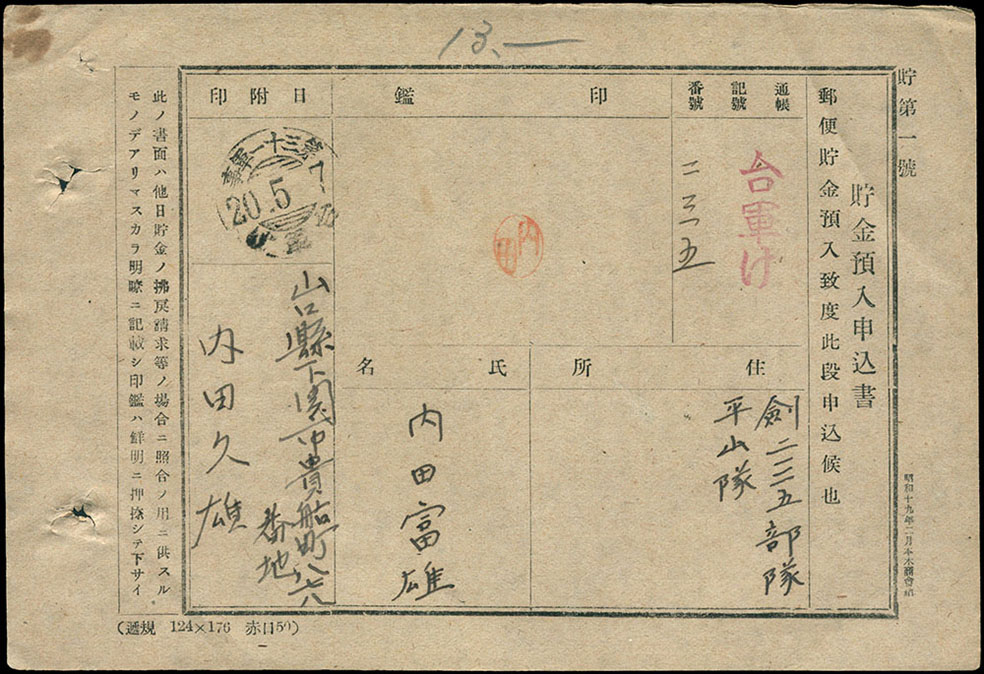 13.—
貯第一號
貯金預入申込書
郵便貯金預入致度此段申込候也
通帳
記號
番號
台軍け
二三一五
印鑑
内田
日附印
20.5.
住所
劍二二三五部隊
平山隊
氏名
内田富雄
山口縣下関市貴船町八七八
番地
内田久雄
此ノ書面ハ他日貯金ノ拂戻請求等ノ場合ニ照合ノ用ニ供スル
モノデアリマスカラ明瞭ニ記載シ印鑑ハ鮮明ニ押捺シテ下サイ
(遞規 124×176 赤口50)